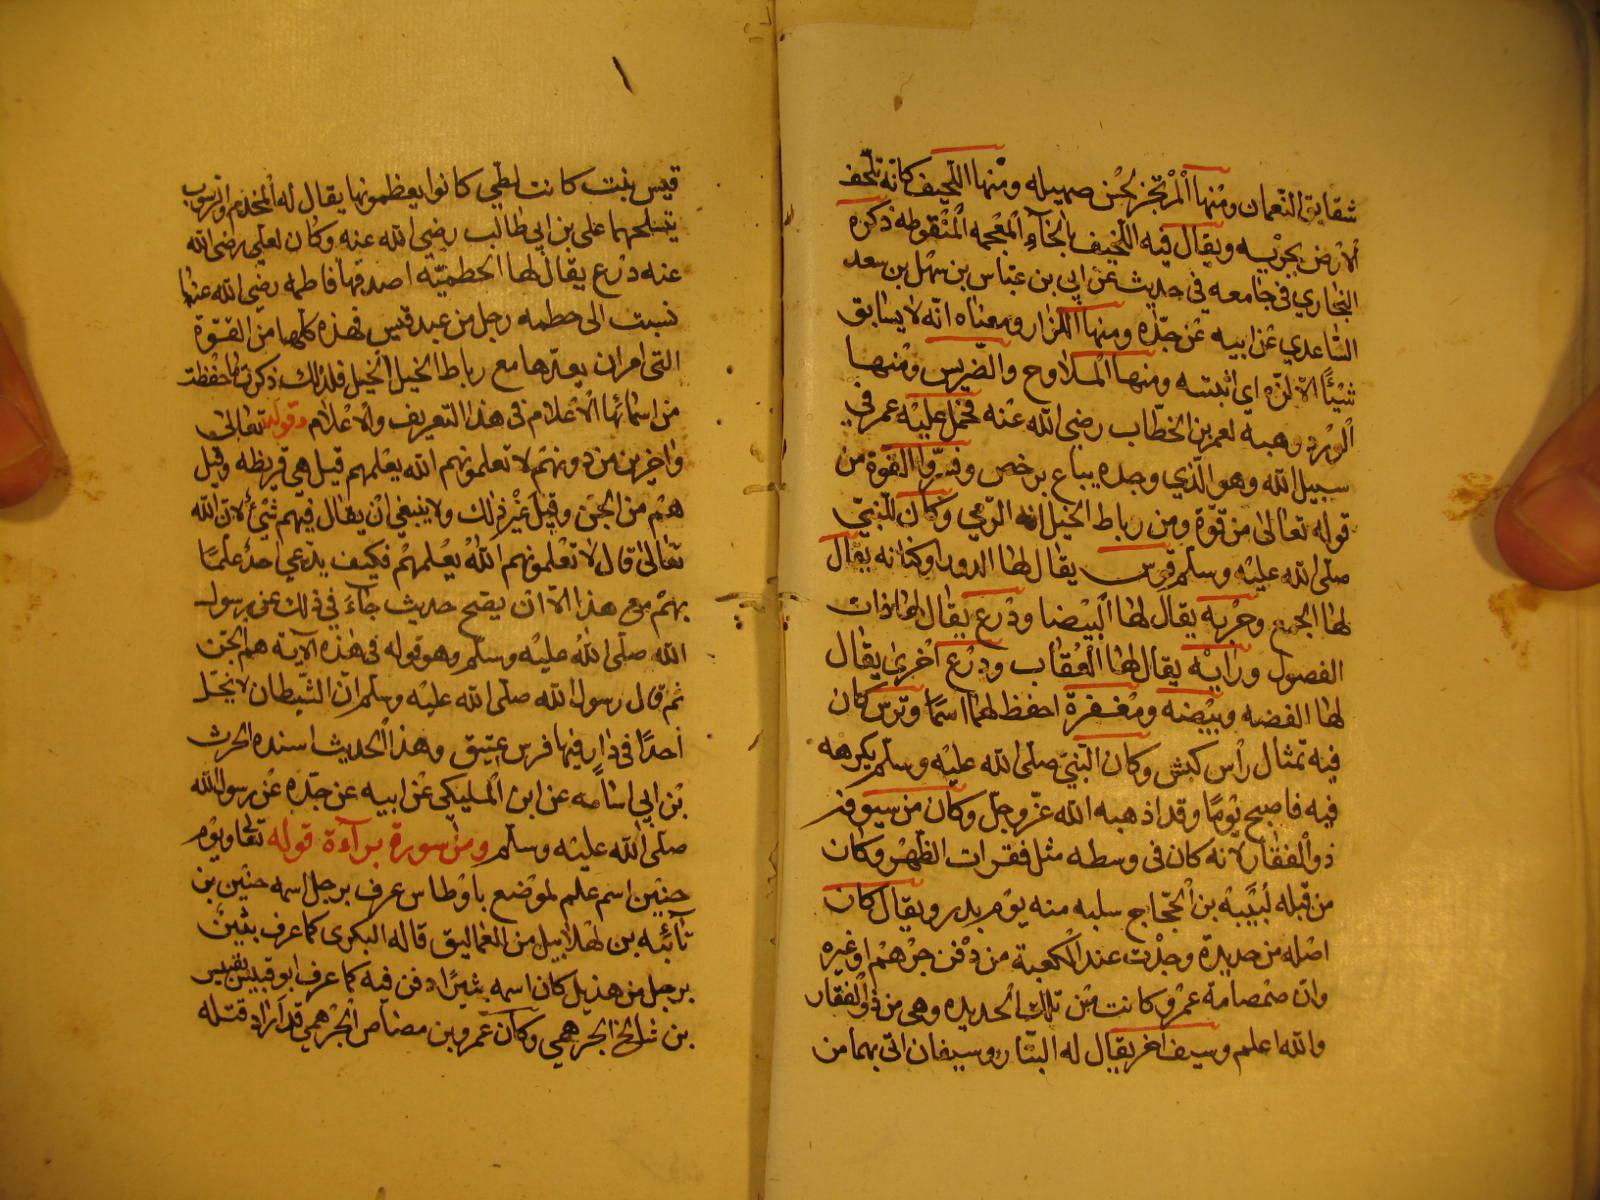 شقايق النعمان ومنها المرتجز لحسن صهيله ومنها اللحيف كانه تلحف
الارض بجريه ويقال فيه اللخيف بالخآء المعجمه المنقوطه ذكره
البخاري في جامعه في حديث عن ابي بن عباس بن سهل بن سعد
الساعدي عن ابيه عن جده ومنها اللزاز ومعناه انه لا يسابق
شيئًا الا لزه اي اثبته ومنها الملاوح والضريس ومنها
الورد وهبه لعمر بن الخطاب رضي الله عنه فحمل عليه عمر في
سبيل الله وهو الذي وجده يباع برخص وفسروا القوة من
قوله تعالى من قوة ومن رباط الخيل انه الرمي وكان للنبي
صلى الله عليه وسلم قوس يقال لها الدودا وكنانه يقال
لها الجمع وحربه يقال لها البيضا ودرع يقال لها ذات
الفصول ورايه يقال لها العقاب ودرع اخرى يقال
لها الفضه وبيضه ومغفرة احفظ لهما اسمًا وترس كان
فيه تمثال رأس كبش وكان النبي صلى الله عليه وسلم يكرهه
فيه فاصبح يومًا وقد اذهبه الله عز وجل وكان من سيوفه
ذو الفقار لانه كان في وسطه مثل فقرات الظهر وكان
من قبله لنبيه بن الحجاج سلبه منه يوم بدر ويقال كان
اصله من حديدة وجدت عند الكعبة من دفن جرهم او غيره
وان صمصامة عمرو كانت من تلك الحديده وهي من ذو الفقار
والله اعلم وسيف اخر يقال له البتار وسيفان اتى بهما من
قيس بنت كانت لطي كانوا يعظمونها يقال له المخذم والرسوب
يتسلحهما علي بن ابي طالب رضي الله عنه وكان لعلي رضي الله
عنه درع يقال لها الحطميه اصدقها فاطمه رضي الله عنها
نسبت الى حطمه رجل من عبد قيس فهذه كلها من القوة
التي امر ان يعدها مع رباط الخيل الخيل فلذلك ذكرت ما حفظت
من اسمائها الاعلام في هذا التعريف والاعلام وقوله تعالى
واخرين من دونهم لا تعلمونهم الله يعلمهم قيل هي قريظه وقيل
هم من الجن وقيل غير ذلك ولا ينبغي ان يقال فيهم شئ لان الله
تعالى قال لا تعلمونهم الله يعلمهم فكيف يدعي احد علمًا
بهم مع هذا الا ان يصح حديث جآء في ذلك عن رسول
الله صلى الله عليه وسلم وهو قوله في هذه الآية هم الجن
ثم قال رسول الله صلى الله عليه وسلم ان الشيطان لا يخبل
احدًا في دار فيها فرس عتيق وهذا الحديث اسنده الحرث
بن ابي اسامه عن ابن المليكي عن ابيه عن جده عن رسول الله
صلى الله عليه وسلم ومن سورة برآءة قوله تعالى ويوم
حنين اسم علم لموضع باوطاس عرف برجل اسمه حنين بن
قآئبه بن مهلابيل من العماليق قاله البكرى كما عرف بثبير
برجل من هذيل كان اسمه بثيرًا دفن فيه كما عرف ابو قبيس بقبيس
بن شالخ الجرهمي وكان عمرو بن مضاض الجرهمي قد اراد قتله